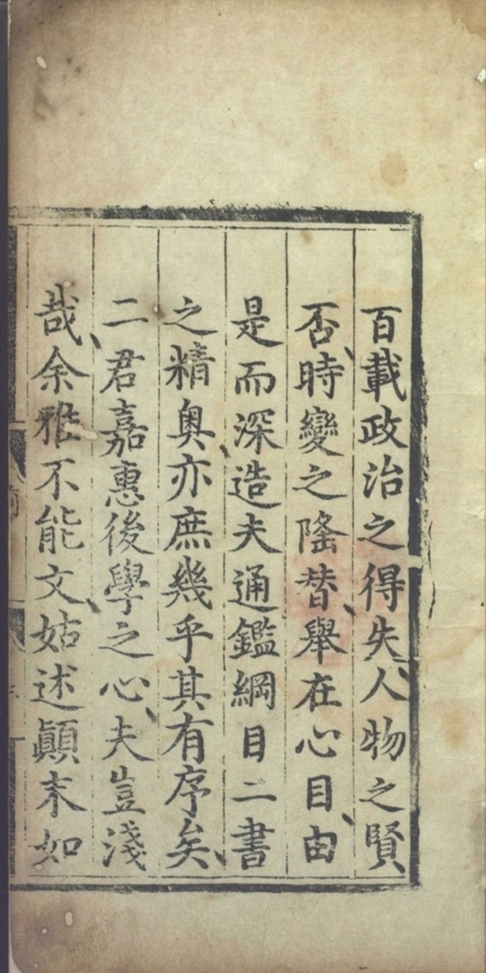 百載政治之得失、人物之賢
否、時變之隆替、舉在心目、由
是而深造夫通鑑綱目二書
之精奧、亦庶幾乎其有序矣、
二君嘉惠後學之心、夫豈淺
哉、余雅不能文、姑述顛末如